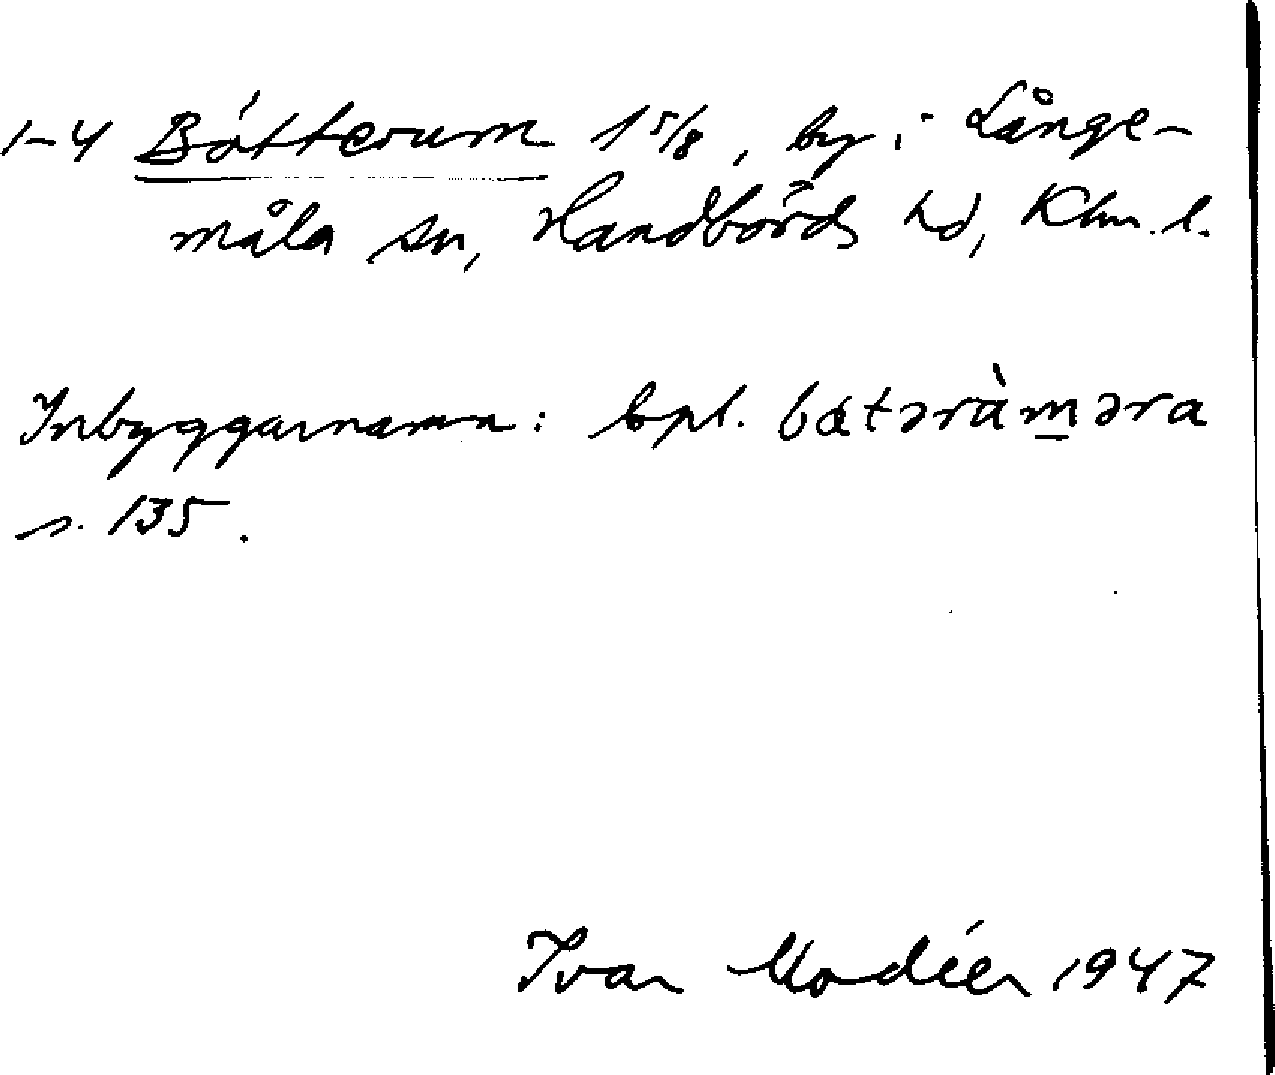 1-4 Bótterum 1 5/8, by i Långe-
måla sn, Handbörds hd, Klm. l.
Inbyggarnamn: bpl. batəràm̲əra
s. 135.
Ivar Modéer 1947